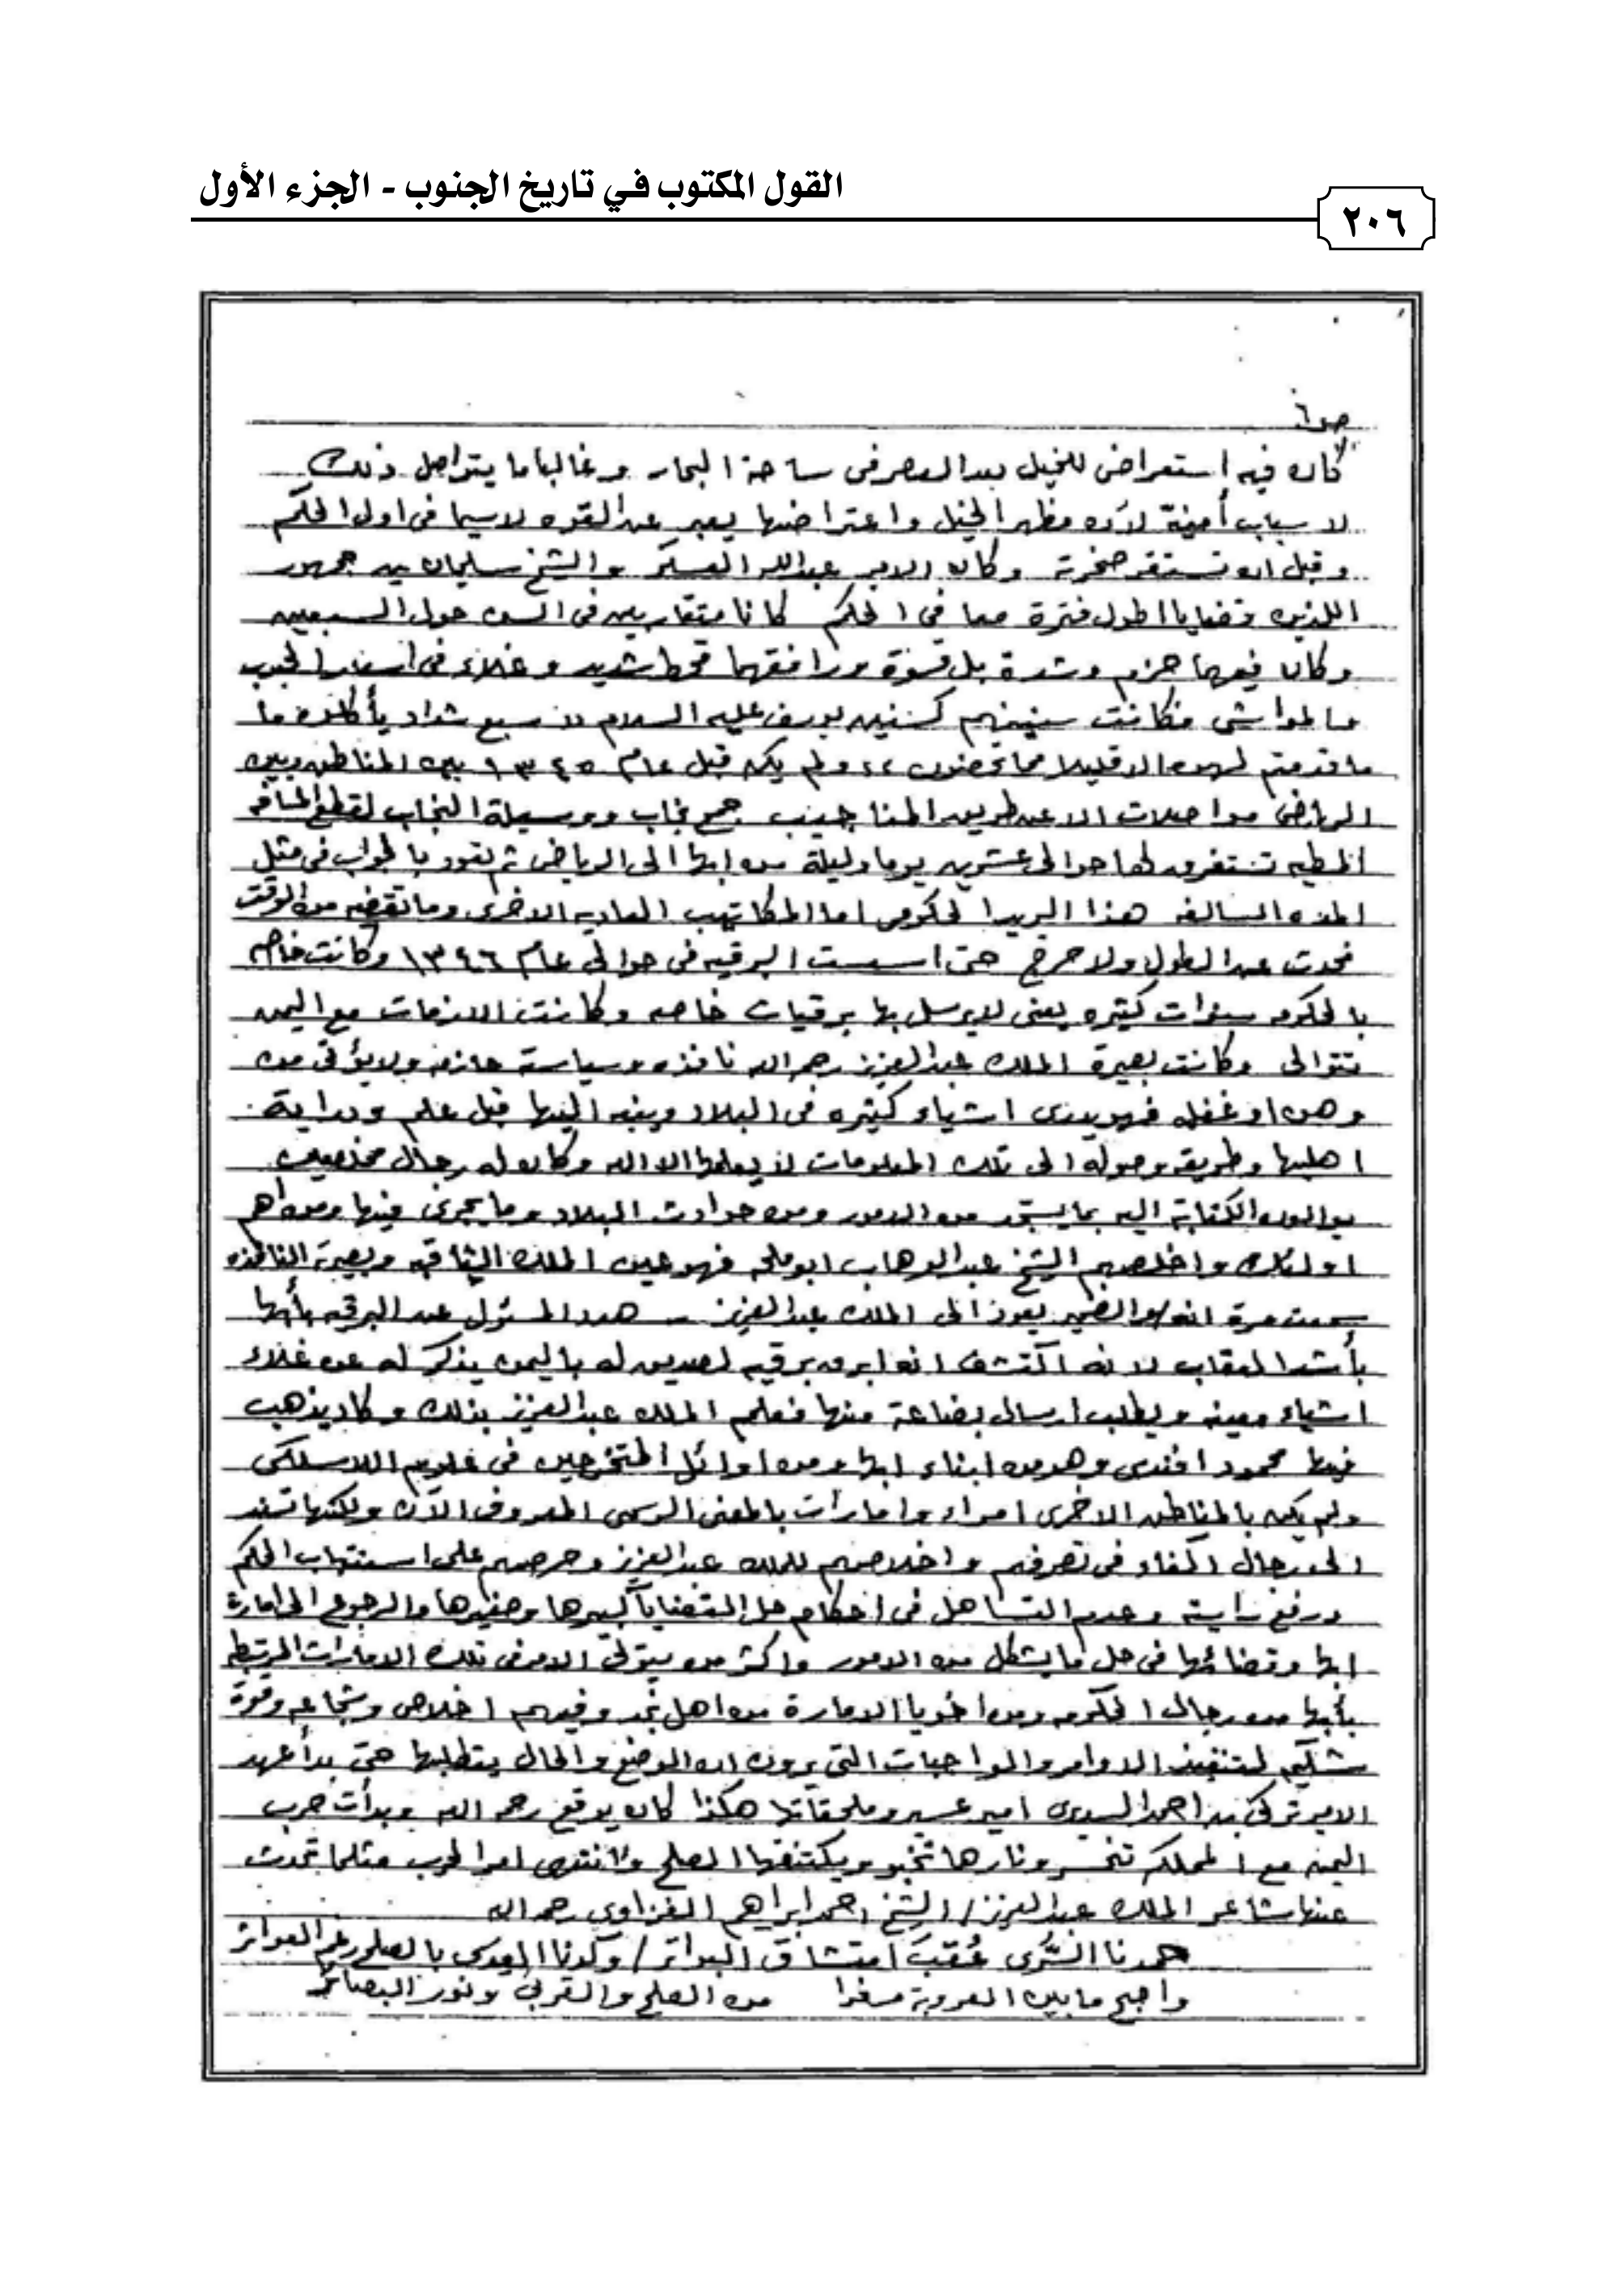 القول المكتوب في تاريخ الجنوب - الجزء الأول
٢٠٦
ص٦
كان فيه استعراض للخيل بعد العصر في ساحة البحار وغالبا ما يتواصل ذلك
لاسباب أمنية لأن مظهر الخيل واعتراضها يعبر عن القوه لاسيما في اول الحكم
وقبل ان تستقر صخرته وكان الامير عبدالله العسكر والشيخ سليمان بن جمهور
اللذين قضايا اطول فترة معا في الحكم كانا متقاربين في السن حول السبعين
وكان فيهما حزم وشدة بل قسوة ورافقهما قحط شديد وغلاء في اسعار الحبوب
والمواشي فكانت سنينهم كسنين يوسف عليه السلام لا سبع شداد يأكلون ما
ما قدمتم لهن الا قليلا مما تحصنون ،، ولم يكن قبل عام ١٣٤٥ بين المناطق وبين
الرياض مواصلات الا عن طريق المناجيب جمع نجاب ووسيلة النجاب لقطع المسافه
المطيه تستغرق لها حوالي عشرين يوما وليلة من ابها الى الرياض ثم تعود بالجواب في مثل
المده السالفه هذا البريد الحكومي اما المكاتيب العاديه الاخرى وما تقضيه من الوقت
فحدث عن الطول ولا حرج حتى اسست البرقيه في حوالي عام ١٣٤٦ وكانت خاصه
بالحكومه سنوات كثيره يعني لا يرسل بها برقيات خاصه وكانت الازمات مع اليمن
تتوالى وكانت بصيرة الملك عبدالعزيز رحمه الله نافذه وسياسته حازمه ولا يؤتى من
وهن او غفله فهو يدري اشياء كثيره في البلاد وينبه اليها قبل علم ودراية
اهلها وطريقه وصوله الى تلك المعلومات لا يعلمها الا الله وكان له رجال مخلصين
يوالون الكتابة اليه بما يستجد من الامور ومن حوادث البلاد وما يجري فيها ومن اهم
اولئك واخلصهم الشيخ عبدالوهاب ابو ملحه فهو عين الملك الثاقبه وبصيرته النافذه
سمعت مرة انه /والضمير يعود الى الملك عبدالعزيز - هدد المسئول عن البرقيه بأبها
بأشد العقاب لانه اكتشف انه ابرق برقيه لصديق له باليمن يذكر له عن غلاء
اشياء معينه ويطلب ارسال بضاعة منها فعلم الملك عبدالعزيز بذلك وكاد يذهب
فيها محمود افندي وهو من ابناء ابها ومن اوائل المتخرجين في علوم اللاسلكي
ولم يكن بالمناطق الاخرى امراء وامارات بالمعنى الرسمي المعروف الآن ولكنها تسند
الى رجال اكفاء في تصرفهم واخلاصهم للملك عبدالعزيز وحرصهم على استتباب الحكم
ورفع رايته وعدم التساهل في احكام حل القضايا كبيرها وصغيرها والرجوع الى امارة
ابها وقضائها في حل ما يشكل من الامور واكثر من يتولى الامر في تلك الامارات المرتبطه
بأبها من رجال الحكومه ومن اخويا الامارة من اهل نجد وفيهم اخلاص وشجاعه وقوة
شكيمه لتنفيذ الاوامر والواجبات التي يرون ان الوضع والحال يتطلبها حتى بدأ عهد
الامير تركي بن احمد السديري امير عسير وملحقاتها هكذا كان يوقع رحمه الله وبدأت حرب
اليمن مع المملكه تنحسر ونارها تخبو ويكتنفها الصلح وانتهى امر الحرب مثلما تحدث
عنها شاعر الملك عبدالعزيز/ الشيخ احمد ابراهيم الغزاوي رحمه الله
حمدنا السُّرى عُقبَ امتشاق البواتر / وكدنا العدى بالصلح رغم العواثر
واصبح ما بين العروبة مسفرا من الصلح والقربى ونور البصائر